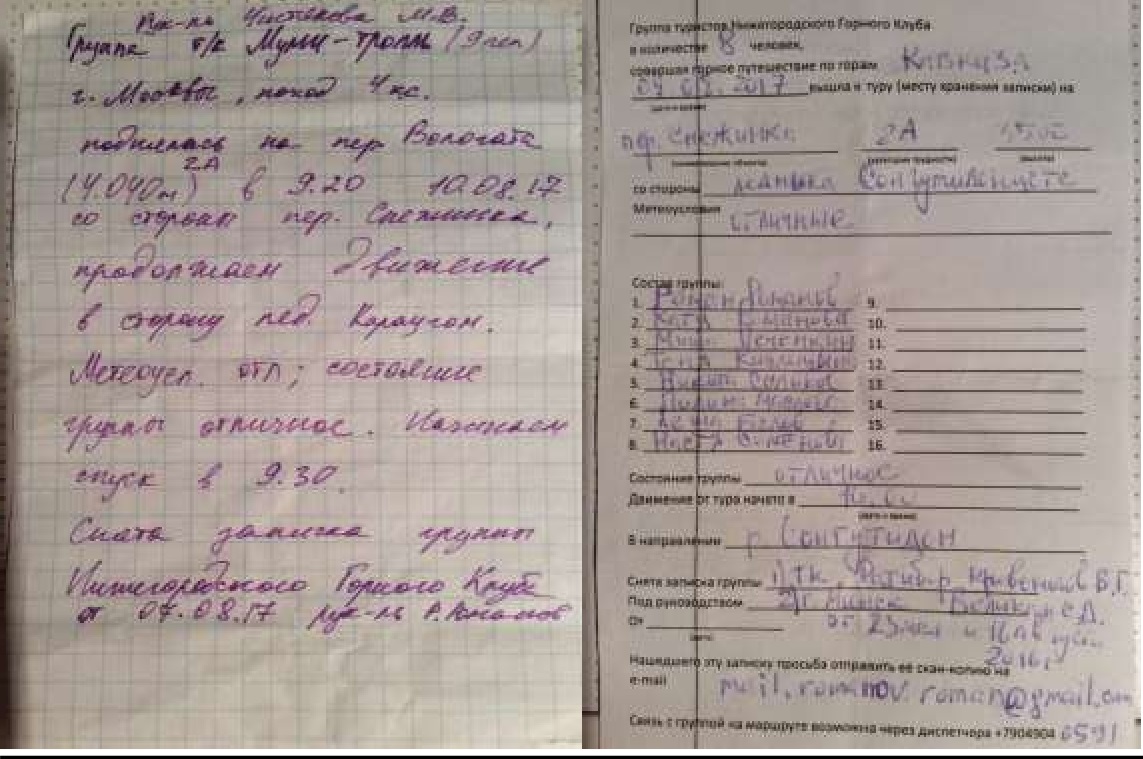 Рук-ль Чистякова М.В.
Группа т/к Муми-тролли (9 чел)
г. Москвы, поход 4 кс.
поднялась на пер Вологата
2А
(4.040м) в 9.20 10.08.17
со стороны пер. Снежинка,
продолжаем движение
в сторону лед. Караугом.
Метеоусл. отл; состояние
группы отличное. Начинаем
спуск в 9.30.
Снята записка группы
Нижегородского Горного Клуба
от 07.08.17 рук-ль Р.Романов
Группа туристов Нижегородского Горного Клуба
в количестве 8 человек,
совершая горное путешествие по горам Кавказа
2017 вышла к туру (месту хранения записки) на
(дата и время)
пер. Снежинка 2А
(наименование объекта) (категория трудности) (высота)
со стороны ледника
Метеоусловия
отличные
Состав группы:
1. Роман Романов 9.
2. Катя Романова 10.
3. Миша 11.
4. 12.
5. 13.
6. 14.
7. 15.
8. Настя 16.
Состояние группы отличное
Движение от тура начато в 10.00
(дата и время)
В направлении р. Сонгутидон
Снята записка группы В.Г.
Под руководством г. Минск
От
(дата)
2016г
Нашедшего эту записку просьба отправить её скан-копию на
e-mail mail.romanov.roman@gmail.com
Связь с группой на маршруте возможна через диспетчера +7904904 0591